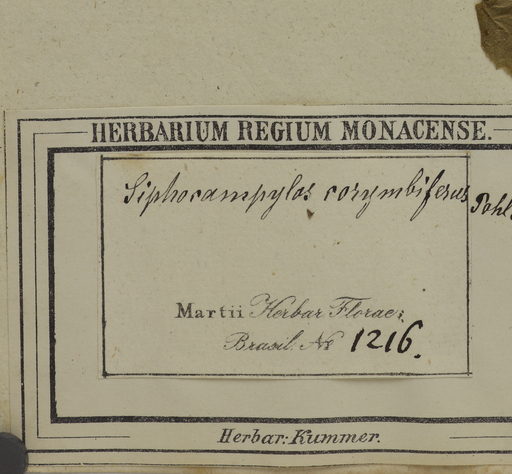 HERBARIUM REGIUM MONACENSE.
Siphocampylos corymbiferus Pohl.
Martii Herbar Florae
Brasil. No 1216.
Herbar: Kummer.